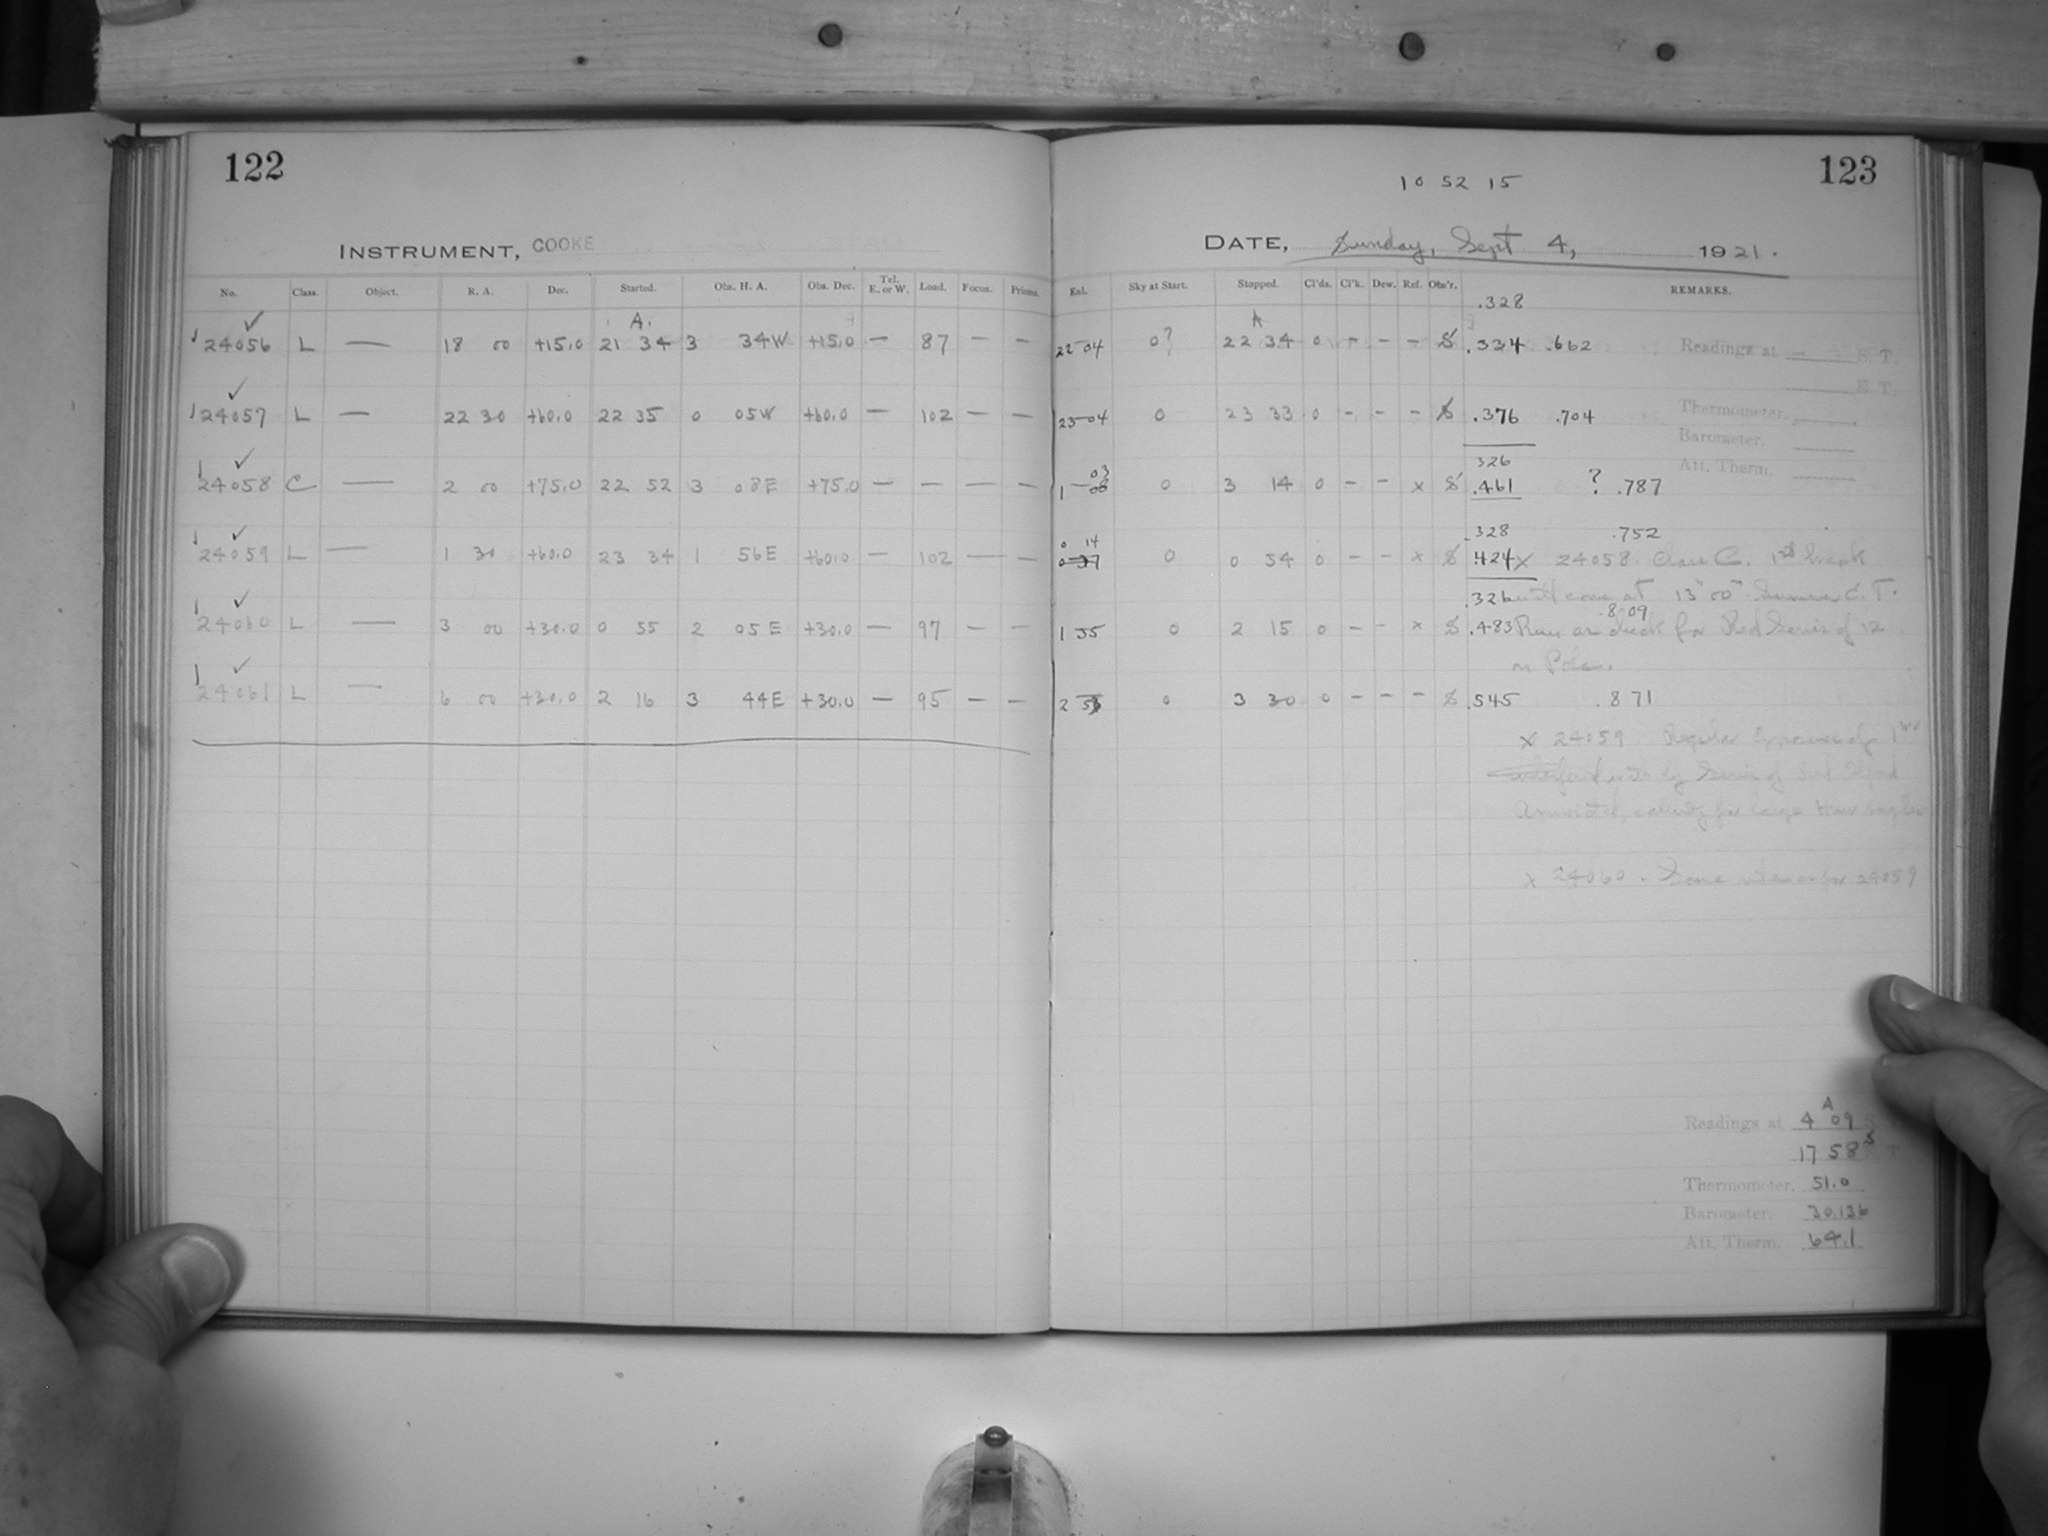 122
INSTRUMENT, COOKE
No. Class. Object. R. A. Dec. Started. Obs. H. A. Obs. Dec. Tel. E. or W. Load. Focus. Prisms.
A.
1 24056 ✓ L — 18 00 +15.0 21 34 3 34W +15.0 — 87 — —
1 24057 ✓ L — 22 30 +60.0 22 35 0 05W +60.0 — 102 — —
1 24058 ✓ C — 2 00 +75.0 22 52 3 08E +75.0 — — — —
1 24059 ✓ L — 1 30 +60.0 23 34 1 56E +60.0 — 102 — —
1 24060 ✓ L — 3 00 +30.0 0 55 2 05E +30.0 — 97 — —
1 24061 ✓ L — 6 00 +30.0 2 16 3 44E +30.0 — 95 — —
123
10 52 15
DATE, Sunday, Sept 4, 1921.
Exl. Sky at Start. Stopped. Cl'ds. Cl'k. Dew. Rel. Obs'r. REMARKS.
.328
A
22 04 0? 22 34 0 - - - S .334 .662
Readings at S. T.
E. T.
23 04 0 23 33 0 - - - S .376 .704
Thermometer.
Barometer.
Att. Therm.
03 .326
1 08 0 3 14 0 - - x S .461 ? .787
0 14 .328 .752
0 37 0 0 54 0 - - x S .424 x 24058 Class C. 1st break
.326 at 13h 00m Summer E. T.
.809
1 35 0 2 15 0 - - x S .483 Run as check for Red Series of 12
on Pole.
2 53 0 3 30 0 - - - S .545 .871
x 24059. Regular Exposure of 1
by Series of Red
for large hour angles
x 24060. Same as for 24059
Readings at 4 09 A
17 58 S T
Thermometer. 51.0
Barometer. 30.136
Att. Therm. 64.1